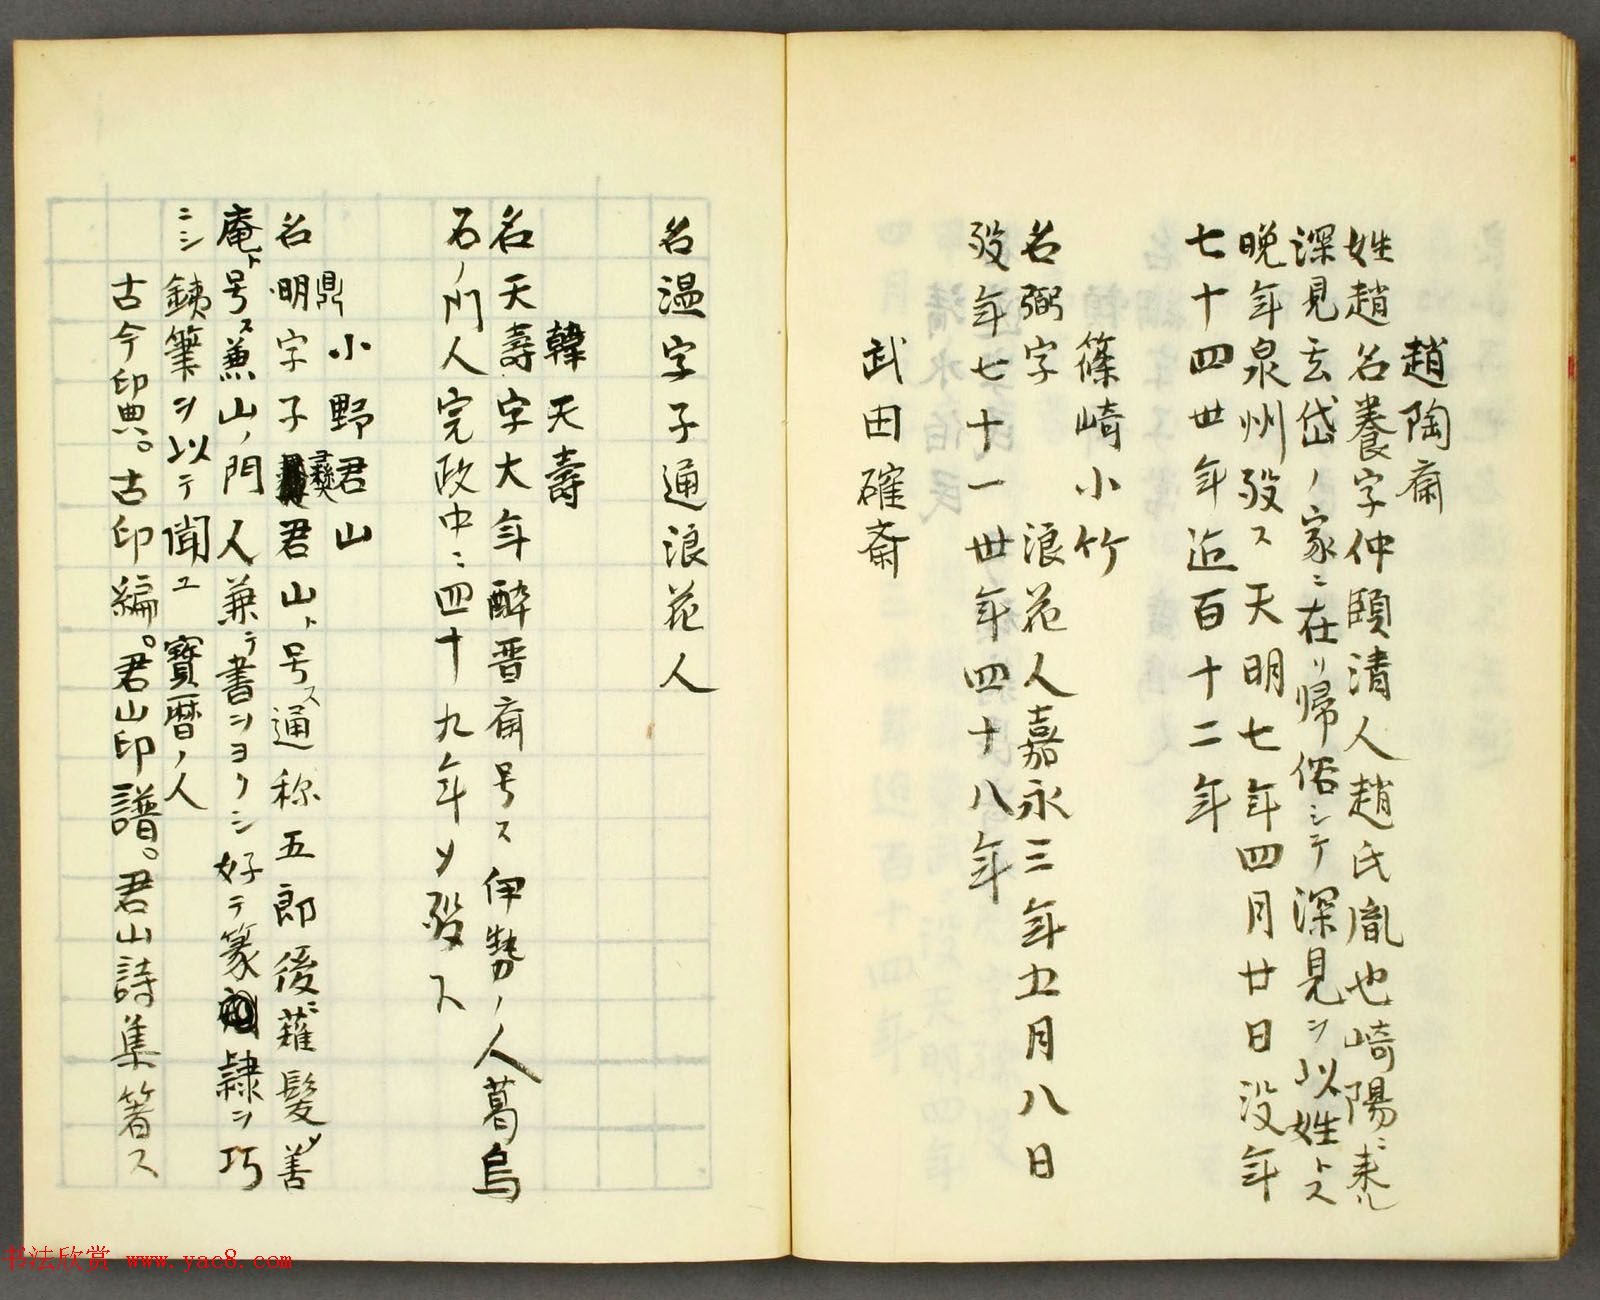 趙陶斎
姓趙名養字仲頤清人趙氏胤也崎陽ニ来ル
深見玄岱ノ家ニ在リ帰俗シテ深見ヲ以姓トス
晩年泉州歿ス天明七年四月廿日没年
七十四丗年迄百十二年
篠崎小竹
名弼字 浪花人嘉永三年五月八日
歿年七十一丗年四十八年
武田確斎
名温字子通浪花人
韓天壽
名天壽字大年酔晋斎号ス伊勢ノ人葛烏
石ノ門人完政中ニ四十九年ソ歿ス
鼎小野君山
名明字子彝君山ト号ス通称五郎後ニ薙髪ソ善
庵ト号ス兼山ノ門人兼テ書ヲヨクシ好テ篆隷ヲ巧
ニシ銕筆ヲ以テ聞エ 寳暦ノ人
古今印典。古印編。君山印譜。君山詩集箸ス
书法欣赏 www.yac8.com